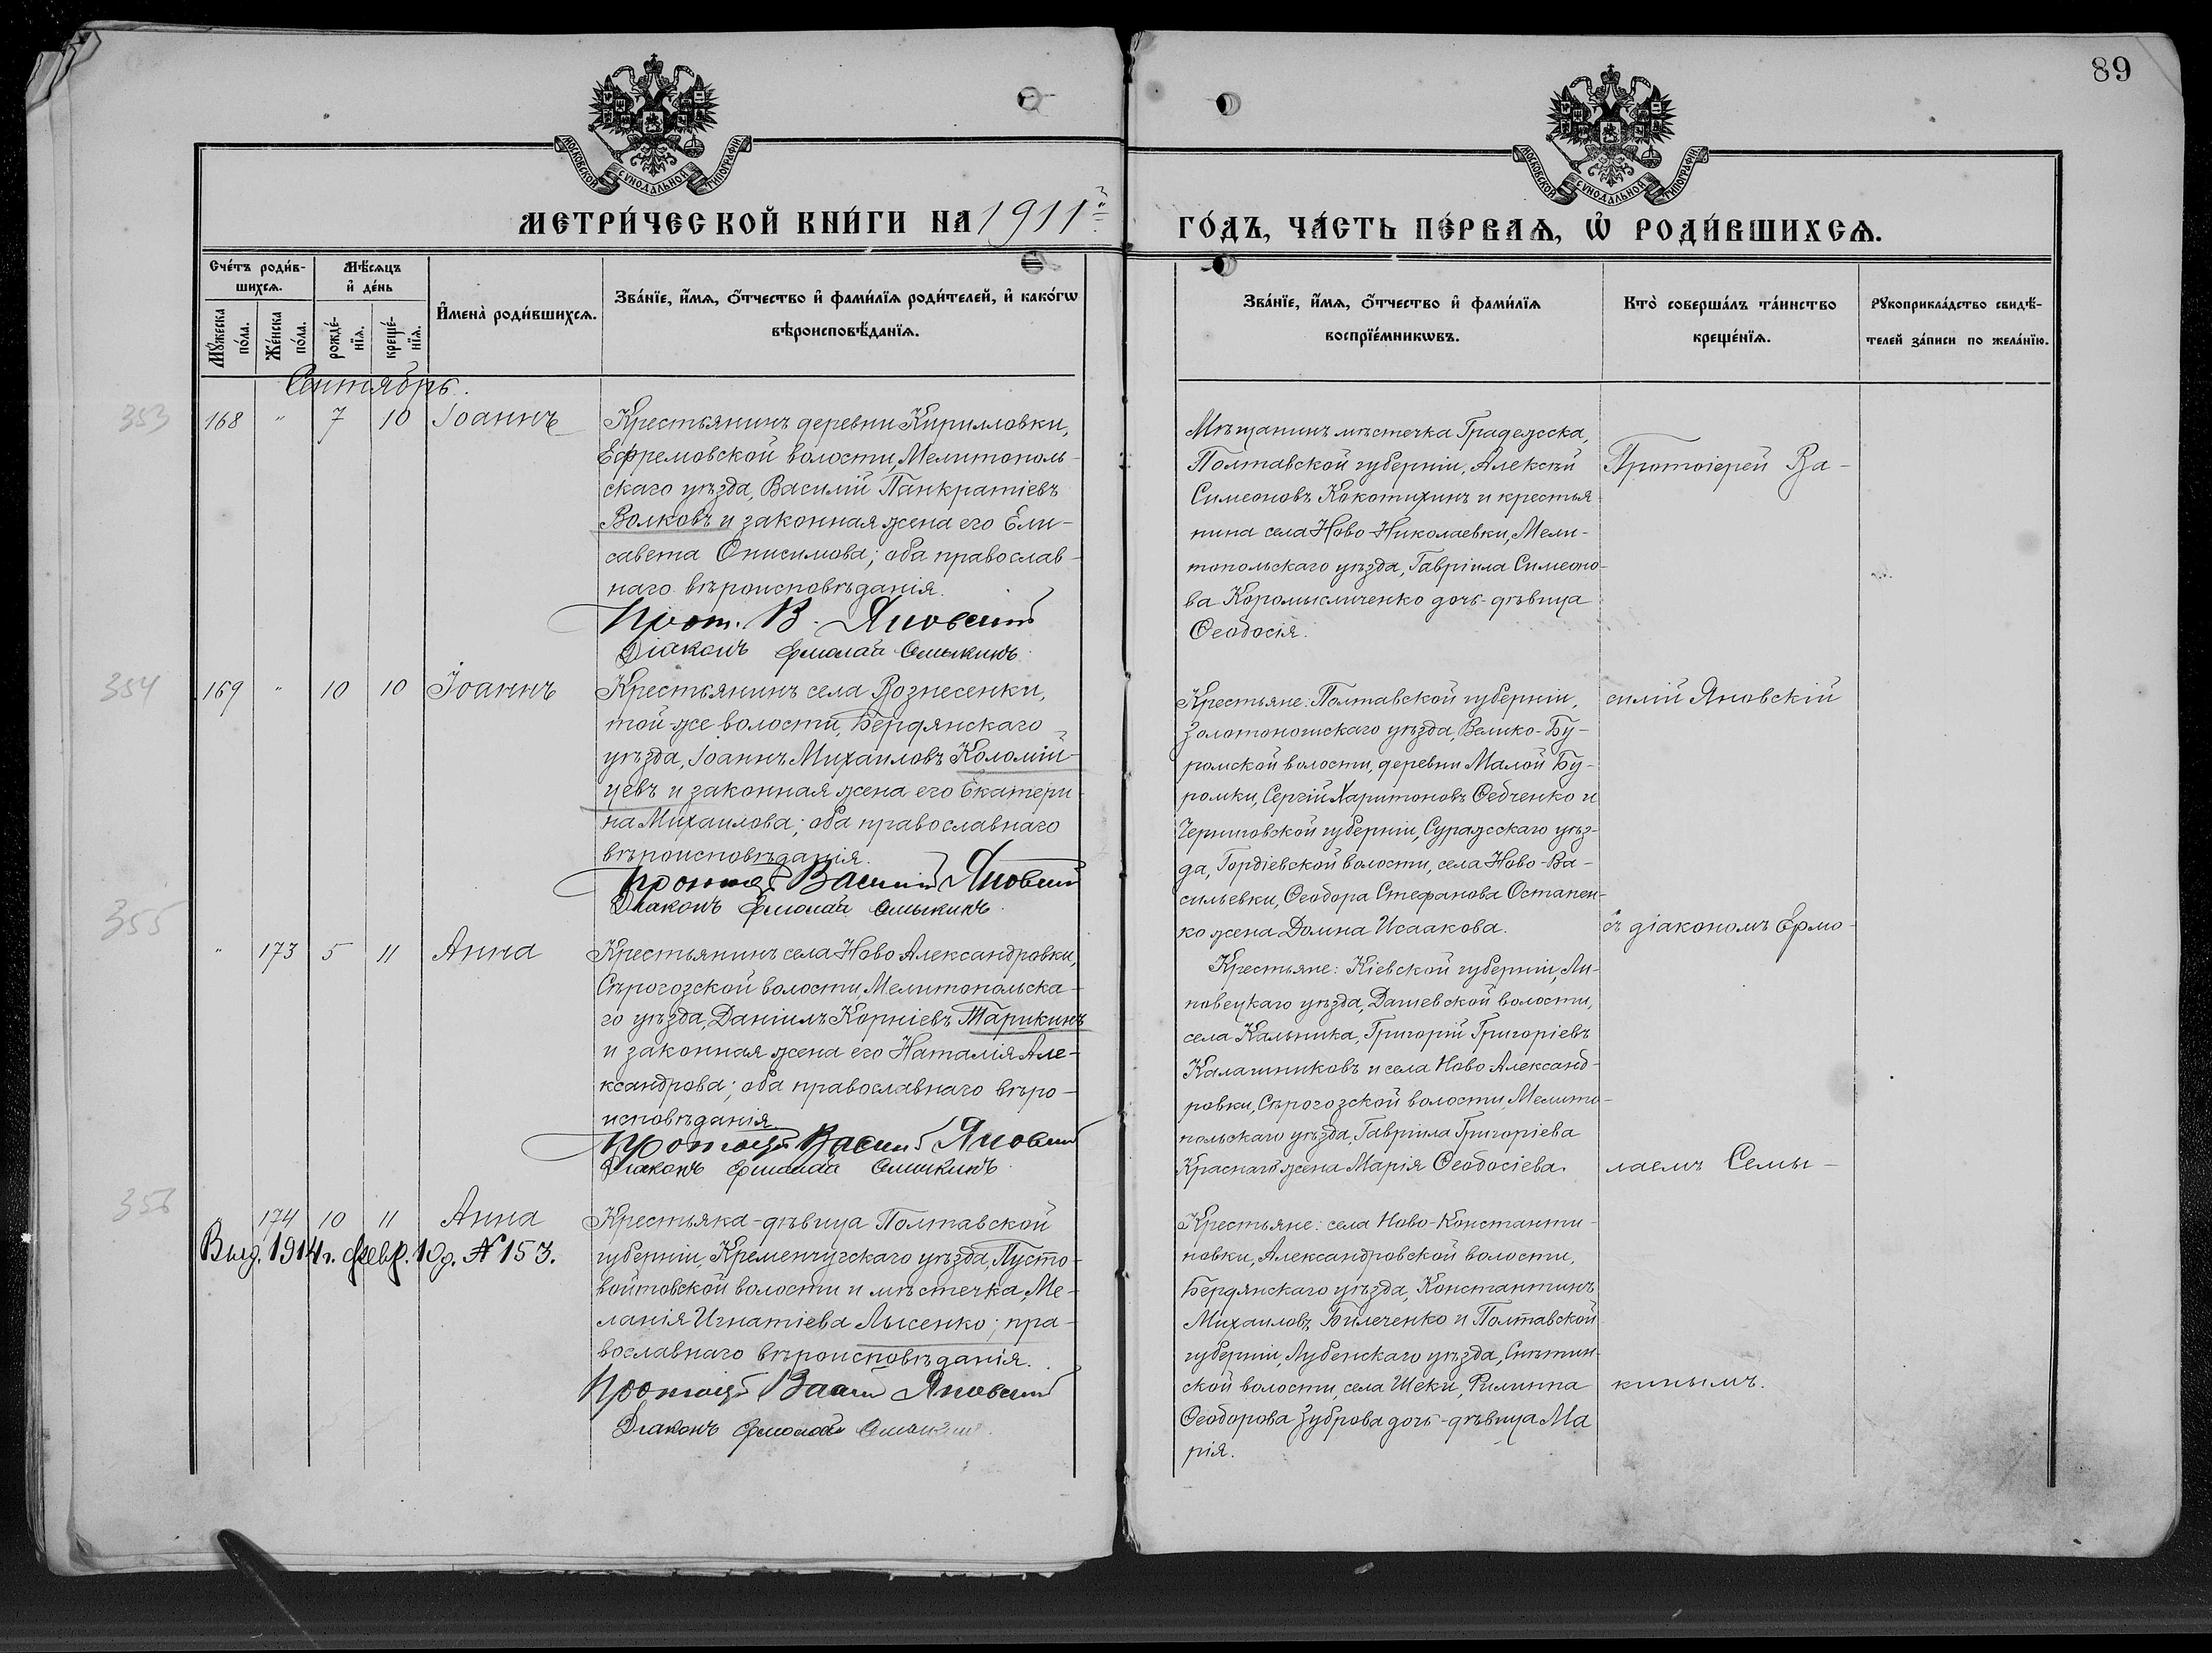 89
МОСКОВСКОЙ СУНОДАЛЬНОЙ ТИПОГРАФІИ
МОСКОВСКОЙ СУНОДАЛЬНОЙ ТИПОГРАФІИ
МЕТРИ́ЧЕСКОЙ КНИ́ГИ НА 1911й
ГО́ДЪ, ЧА́СТЬ ПЕ́РВАѦ, Ѡ҆ РОДИ́ВШИХСѦ.
Сче́тъ роди́в-
шихсѧ.
Мꙋ́жеска
по́ла.
Же́нска
по́ла.
Мѣ́сѧцъ
и҆ де́нь
рожде́-
нїѧ.
креще́-
нїѧ.
И҆мена̀ роди́вшихсѧ.
Зва́нїе, и҆́мѧ, ѻ҆́тчество и҆ фами́лїѧ роди́телей, и҆ како́гѡ
вѣроисповѣ́данїѧ.
Зва́нїе, и҆́мѧ, ѻ҆́тчество и҆ фами́лїѧ
воспрїе́мникѡвъ.
Кто̀ соверша́лъ та́инство
креще́нїѧ.
Рꙋкоприкла́дство свидѣ́-
телей за́писи по жела́нїю.
Сентябрь.
353
168 " 7 10 Іоаннъ
Крестьянинъ деревни Кирилловки,
Ефремовской волости, Мелитополь-
скаго уѣзда, Василій Панкратіевъ
Волковъ и законная жена его Ели-
савета Онисимова; оба православ-
наго вѣроисповѣданія.
Прот. В. Яновскій
Діаконъ Ермолай Семыкинъ
Мѣщанинъ мѣстечка Градежска,
Полтавской губерніи, Алексѣй
Симеоновъ Кокотихинъ и крестья-
нина села Ново-Николаевки, Мели-
топольскаго уѣзда, Гавріила Симеоно-
ва Коромысличенко дочь-дѣвица
Ѳеодосія.
Протоіерей Ва-
354
169 " 10 10 Іоаннъ
Крестьянинъ села Вознесенки,
той-же волости, Бердянскаго
уѣзда, Іоаннъ Михаиловъ Коломій-
цевъ и законная жена его Екатери-
на Михаилова; оба православнаго
вѣроисповѣданія.
Протоіер. Василій Яновскій
Діаконъ Ермолай Семыкинъ.
Крестьяне: Полтавской губерніи,
Золотоношскаго уѣзда, Велико-Бу-
ромской волости, деревни Малой Бу-
ромки, Сергій Харитоновъ Ѳедченко и
Черниговской губерніи, Суражскаго уѣз-
да, Гордіевской волости, села Ново-Ва-
сильевки, Ѳеодора Стефанова Остапен-
ко жена Домна Исаакова.
силій Яновскій
355
" 173 5 11 Анна
Крестьянинъ села Ново Александровки,
Сѣрогозской волости Мелитопольска-
го уѣзда, Даніилъ Корніевъ Тарикинъ
и законная жена его Наталія Але-
ксандрова; оба православнаго вѣро-
исповѣданія.
Протоіер. Василій Яновскій
Діаконъ Ермолай Семыкинъ.
Крестьяне: Кіевской губерніи, Ли-
повецкаго уѣзда, Дашевской волости,
села Кальника, Григорій Григоріевъ
Калашниковъ и села Ново Александ-
ровки, Сѣрогозской волости, Мелито-
польскаго уѣзда, Гавріила Григоріева
Краснаго жена Марія Ѳеодосіева.
съ діакономъ Ермо-
лаемъ Семы-
356
" 174 10 11 Анна
Выд. 1914 г. февр. 10 д. № 153.
Крестьянка-дѣвица Полтавской
губерніи, Кременчугскаго уѣзда, Пусто-
войтовской волости и мѣстечка, Ме-
ланія Игнатіева Лысенко; пра-
вославнаго вѣроисповѣданія.
Протоіер. Василій Яновскій
Діаконъ Ермолай Семыкинъ.
Крестьяне: села Ново-Константи-
новки, Александровской волости,
Бердянскаго уѣзда, Константинъ
Михаиловъ Билеченко и Полтавской
губерніи, Лубенскаго уѣзда, Снѣтин-
ской волости, села Шеки, Филиппа
Ѳеодорова Зуброва дочь-дѣвица Ма
рія.
кинымъ.